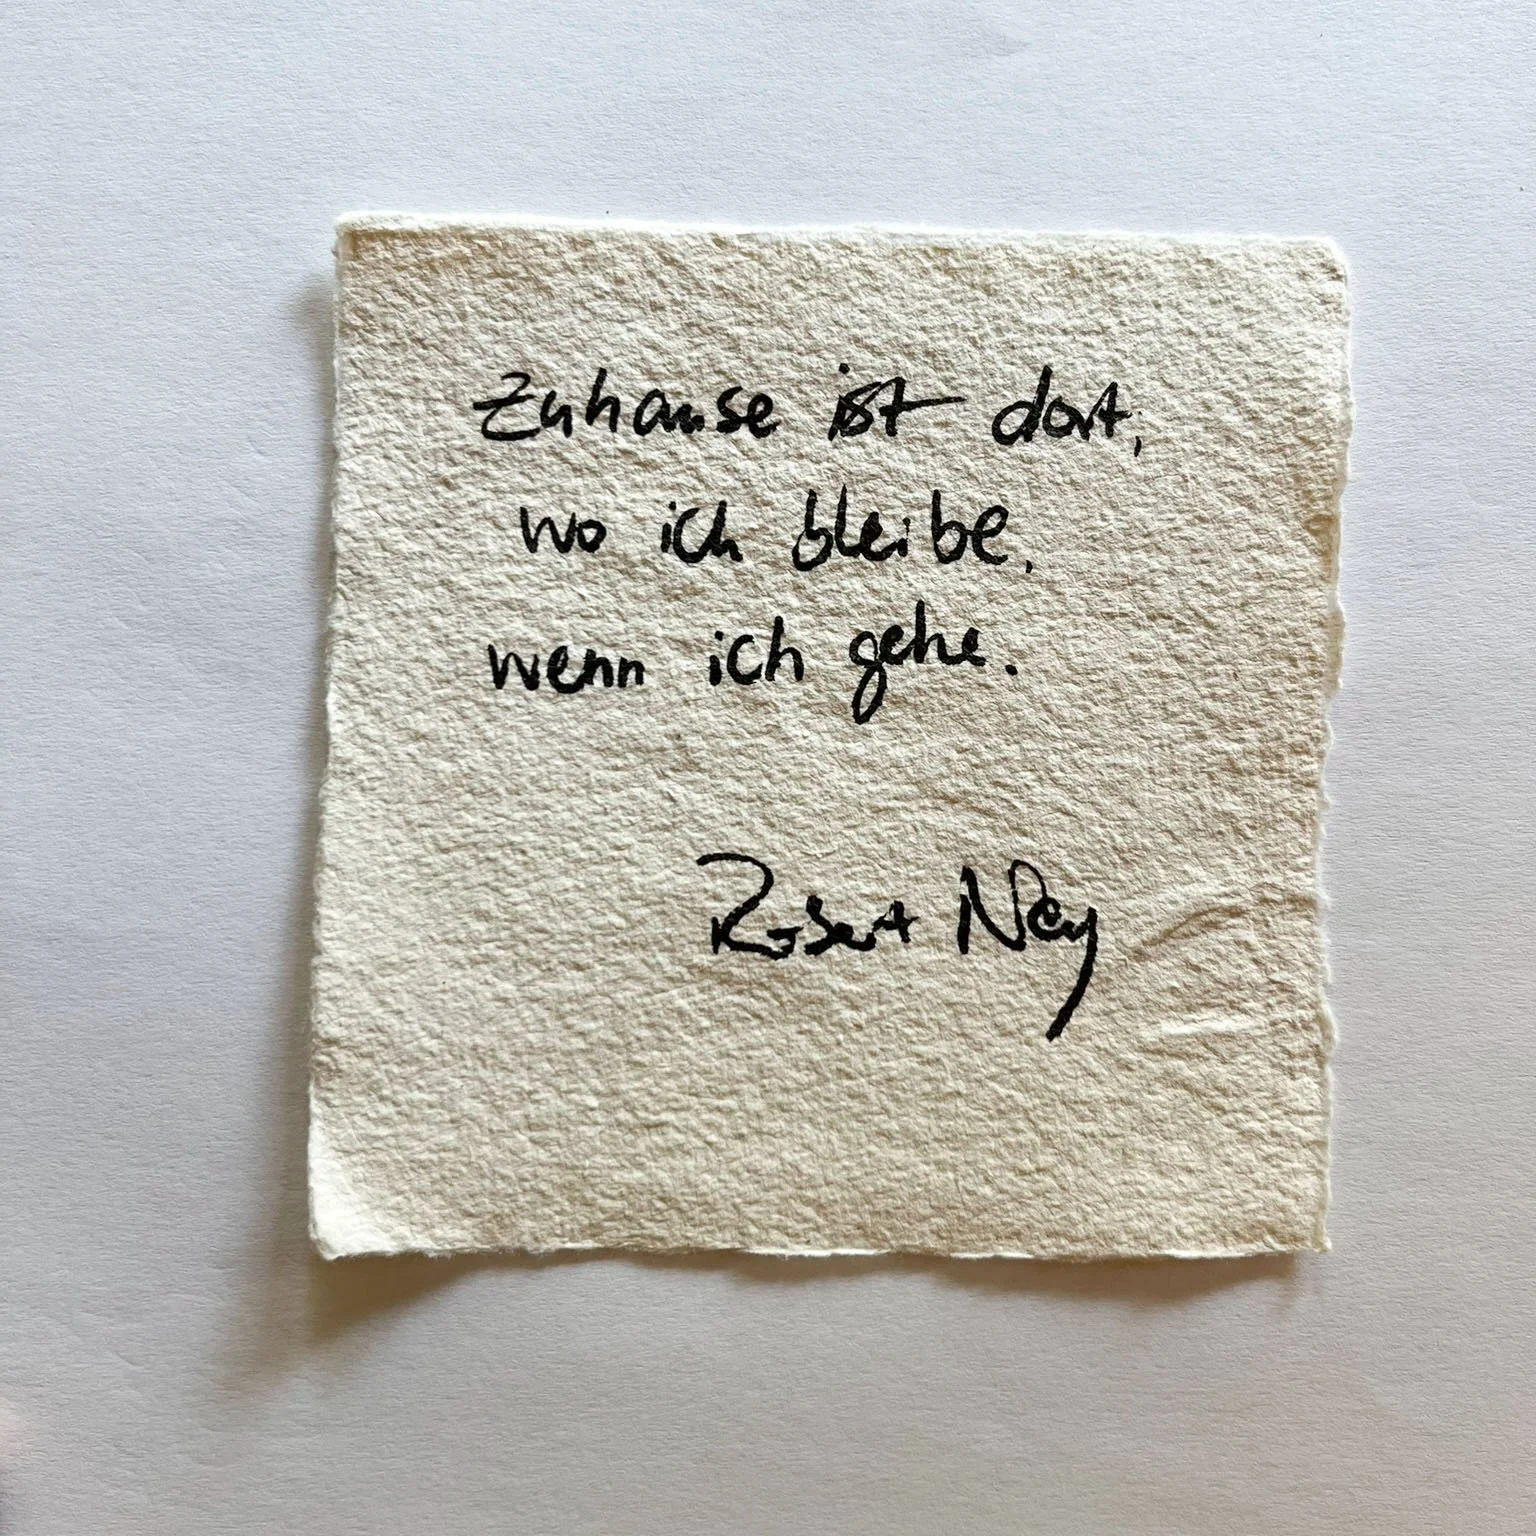 Zuhause ist dort,
wo ich bleibe,
wenn ich gehe.
Robert Ney